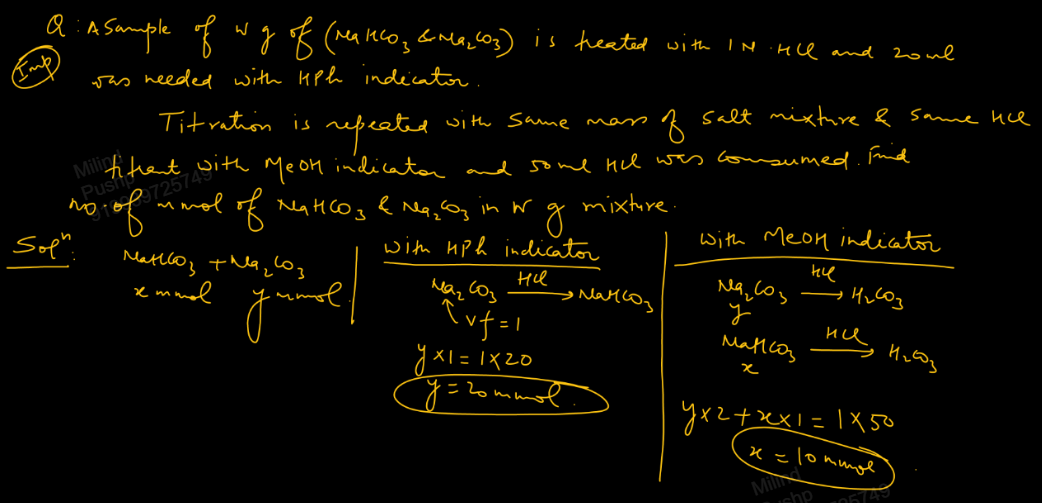 Q: A Sample of w g of (NaHCO3 & Na2CO3) is treated with 1N HCl and 20ml
Imp
was needed with HPh indicator.
Titration is repeated with same mass of salt mixture & same HCl
titrant with MeOH indicator and 50 ml HCl was consumed. Find
no. of mmol of NaHCO3 & Na2CO3 in w g mixture.
Solⁿ:
NaHCO3 + Na2CO3
x mmol y mmol
with HPh indicator
Na2CO3 HCl → NaHCO3
↑ vf = 1
y×1 = 1×20
y = 20 mmol.
with MeOH indicator
Na2CO3 HCl → H2CO3
y
NaHCO3 HCl → H2CO3
x
y×2 + x×1 = 1×50
x = 10 mmol
Milind
Pushp
Milind